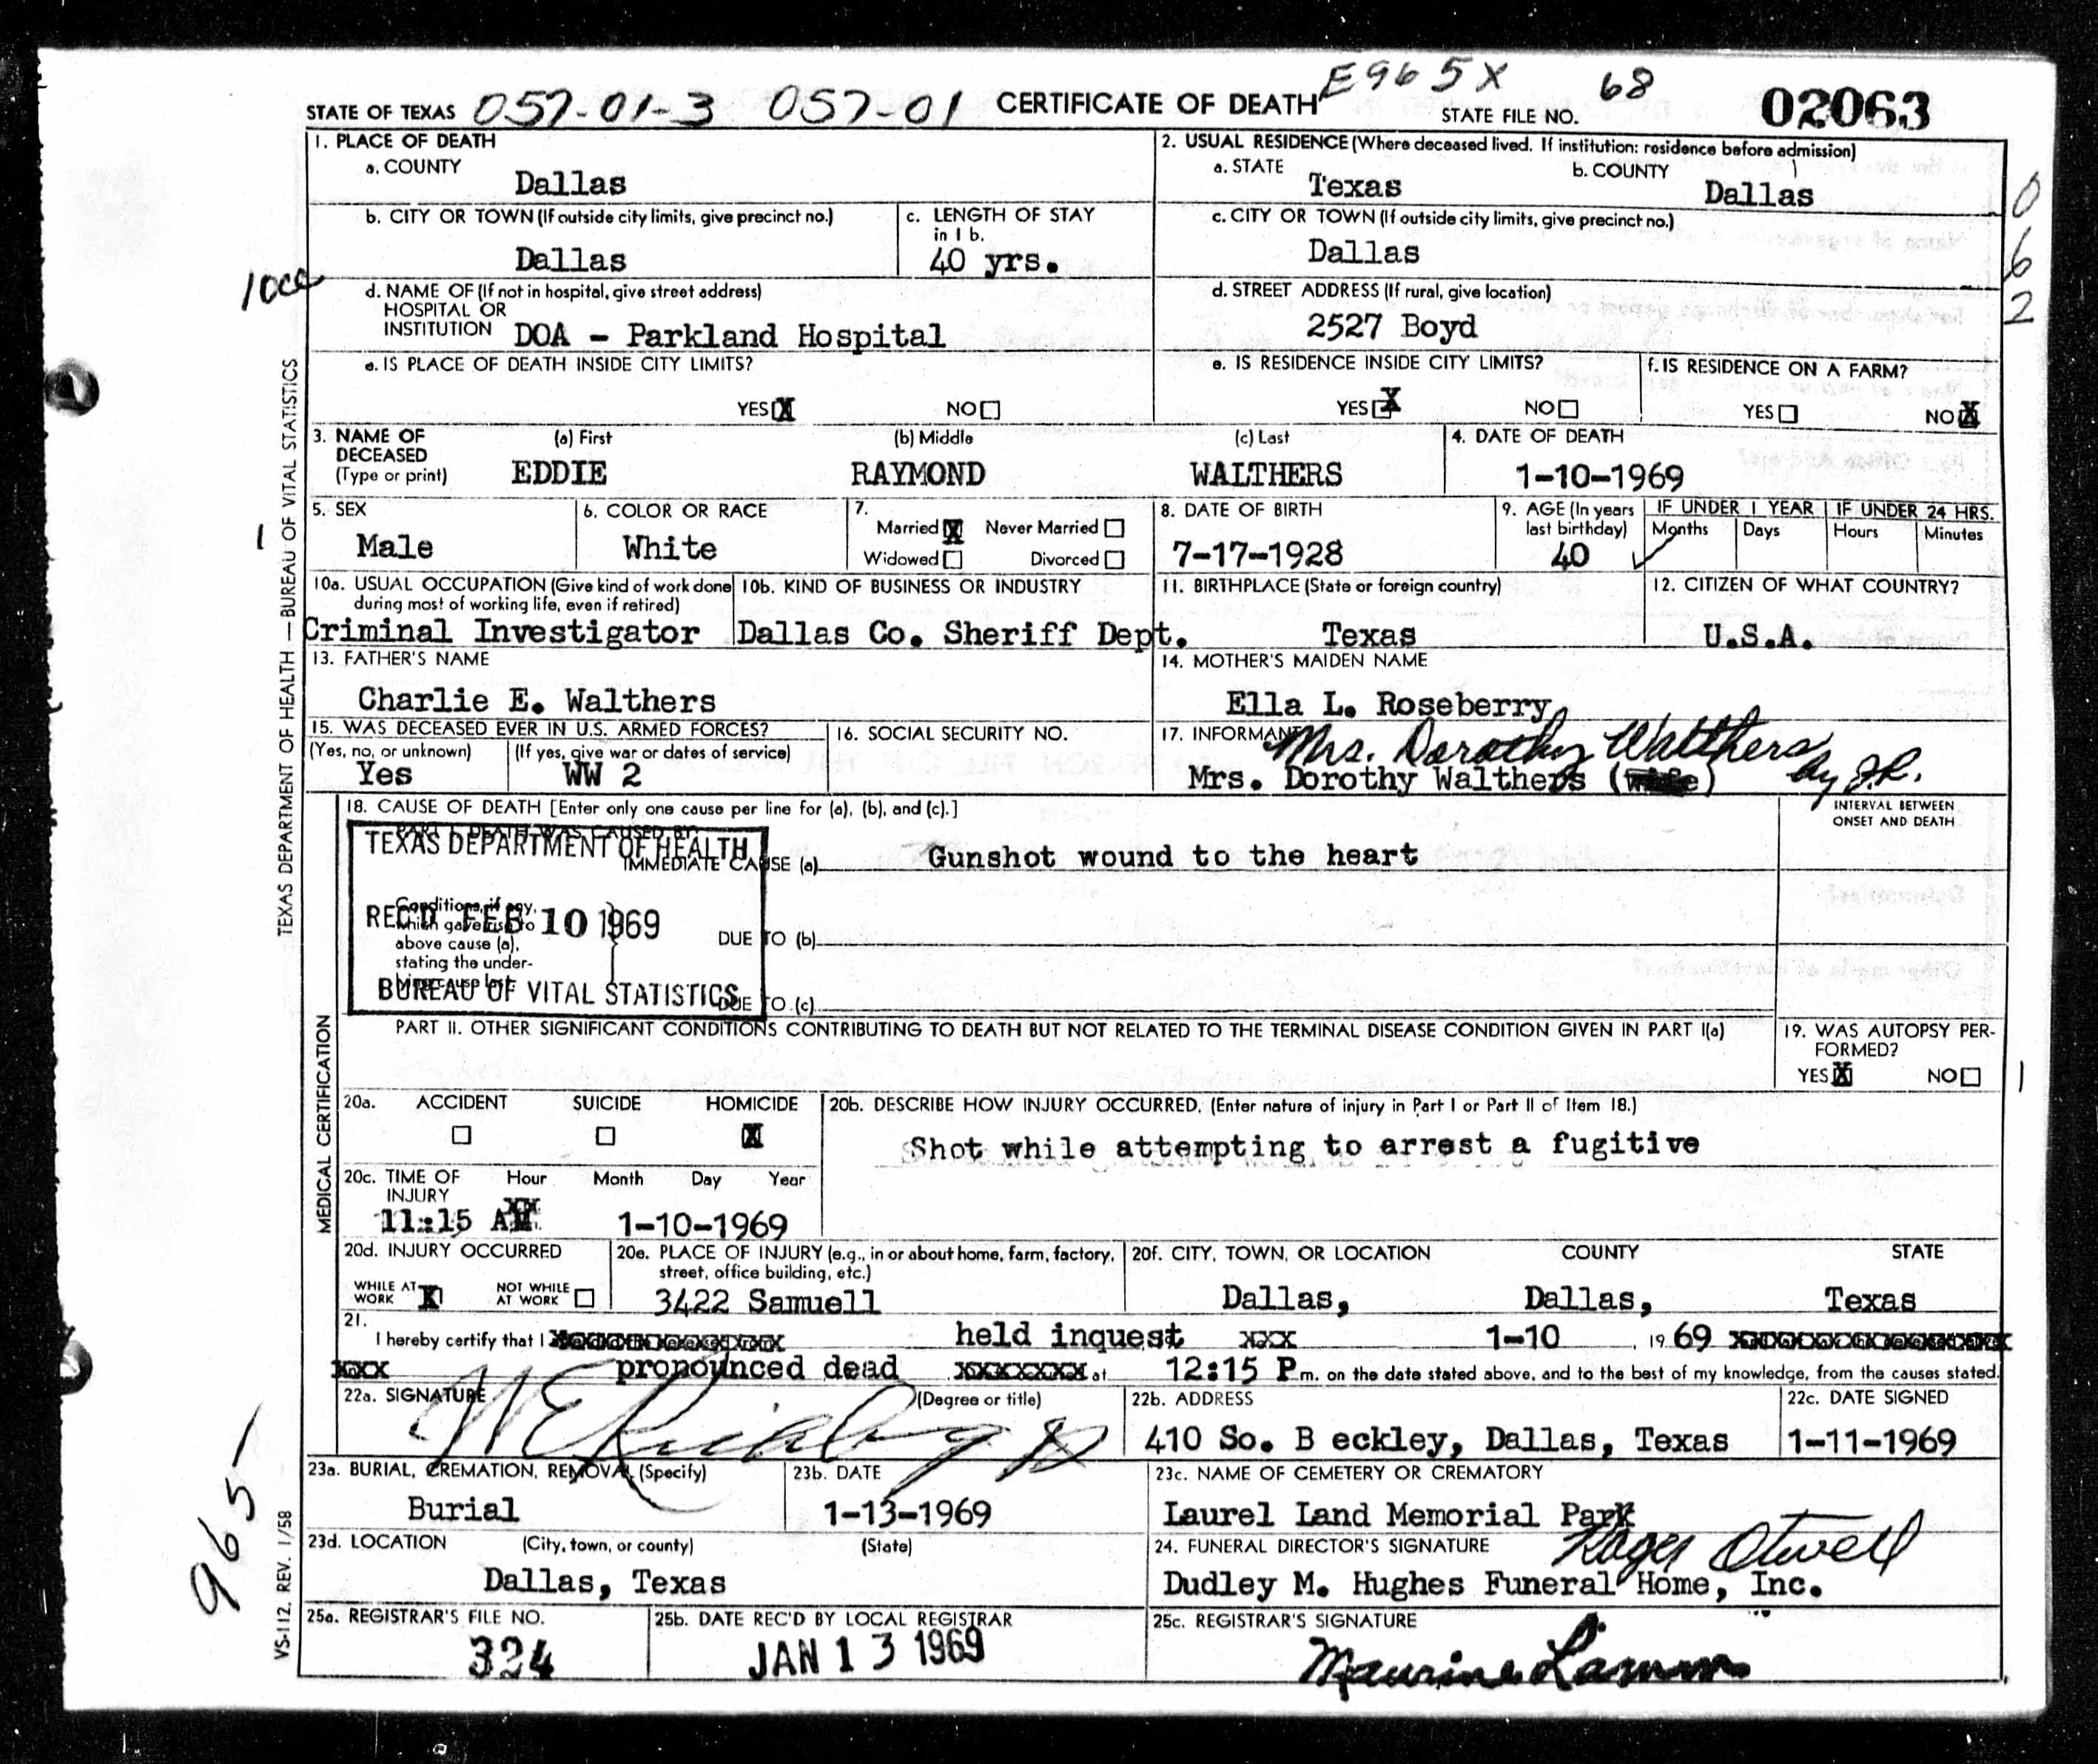 E965X 68
STATE OF TEXAS 057-01-3 057-01 CERTIFICATE OF DEATH STATE FILE NO. 02063
1. PLACE OF DEATH
a. COUNTY Dallas
2. USUAL RESIDENCE (Where deceased lived. If institution: residence before admission)
a. STATE Texas b. COUNTY Dallas
b. CITY OR TOWN (If outside city limits, give precinct no.) Dallas
c. LENGTH OF STAY in 1 b. 40 yrs.
c. CITY OR TOWN (If outside city limits, give precinct no.) Dallas
0
6
2
d. NAME OF (If not in hospital, give street address)
HOSPITAL OR
INSTITUTION DOA - Parkland Hospital
d. STREET ADDRESS (If rural, give location)
2527 Boyd
e. IS PLACE OF DEATH INSIDE CITY LIMITS?
YES X NO
e. IS RESIDENCE INSIDE CITY LIMITS?
YES X NO
f. IS RESIDENCE ON A FARM?
YES NO X
3. NAME OF DECEASED (Type or print)
(a) First EDDIE (b) Middle RAYMOND (c) Last WALTHERS
4. DATE OF DEATH
1-10-1969
5. SEX
Male
6. COLOR OR RACE
White
7. Married X Never Married
Widowed Divorced
8. DATE OF BIRTH
7-17-1928
9. AGE (In years last birthday)
40
IF UNDER 1 YEAR Months Days
IF UNDER 24 HRS. Hours Minutes
1
10a. USUAL OCCUPATION (Give kind of work done during most of working life, even if retired)
Criminal Investigator
10b. KIND OF BUSINESS OR INDUSTRY
Dallas Co. Sheriff Dept.
11. BIRTHPLACE (State or foreign country)
Texas
12. CITIZEN OF WHAT COUNTRY?
U.S.A.
13. FATHER'S NAME
Charlie E. Walthers
14. MOTHER'S MAIDEN NAME
Ella L. Roseberry
15. WAS DECEASED EVER IN U.S. ARMED FORCES?
(Yes, no, or unknown) Yes
(If yes, give war or dates of service) WW 2
16. SOCIAL SECURITY NO.
17. INFORMANT Mrs. Dorothy Walthers by J.R.
Mrs. Dorothy Walthers (wife)
TEXAS DEPARTMENT OF HEALTH — BUREAU OF VITAL STATISTICS
MEDICAL CERTIFICATION
18. CAUSE OF DEATH [Enter only one cause per line for (a), (b), and (c).]
INTERVAL BETWEEN ONSET AND DEATH
PART I. DEATH WAS CAUSED BY:
TEXAS DEPARTMENT OF HEALTH
IMMEDIATE CAUSE (a) Gunshot wound to the heart
Conditions, if any,
which gave rise to
above cause (a),
stating the under-
lying cause last.
REC'D FEB 10 1969
DUE TO (b)
BUREAU OF VITAL STATISTICS
DUE TO (c)
PART II. OTHER SIGNIFICANT CONDITIONS CONTRIBUTING TO DEATH BUT NOT RELATED TO THE TERMINAL DISEASE CONDITION GIVEN IN PART I(a)
19. WAS AUTOPSY PER-
FORMED?
YES X NO
1
20a. ACCIDENT SUICIDE HOMICIDE X
20b. DESCRIBE HOW INJURY OCCURRED. (Enter nature of injury in Part I or Part II of Item 18.)
Shot while attempting to arrest a fugitive
20c. TIME OF INJURY Hour Month Day Year
11:15 AM 1-10-1969
20d. INJURY OCCURRED
WHILE AT WORK X NOT WHILE AT WORK
20e. PLACE OF INJURY (e.g., in or about home, farm, factory, street, office building, etc.)
3422 Samuell
20f. CITY, TOWN, OR LOCATION COUNTY STATE
Dallas, Dallas, Texas
21.
I hereby certify that I held inquest xxx 1-10 , 19 69
xxx pronounced dead xxxxxxx at 12:15 P m. on the date stated above, and to the best of my knowledge, from the causes stated.
22a. SIGNATURE (Degree or title)
W E Richburg
22b. ADDRESS
410 So. B eckley, Dallas, Texas
22c. DATE SIGNED
1-11-1969
23a. BURIAL, CREMATION, REMOVAL (Specify)
Burial
23b. DATE
1-13-1969
23c. NAME OF CEMETERY OR CREMATORY
Laurel Land Memorial Park
23d. LOCATION (City, town, or county) (State)
Dallas, Texas
24. FUNERAL DIRECTOR'S SIGNATURE Roger Otwell
Dudley M. Hughes Funeral Home, Inc.
25a. REGISTRAR'S FILE NO.
324
25b. DATE REC'D BY LOCAL REGISTRAR
JAN 13 1969
25c. REGISTRAR'S SIGNATURE
965
VS-112. REV. 1/58